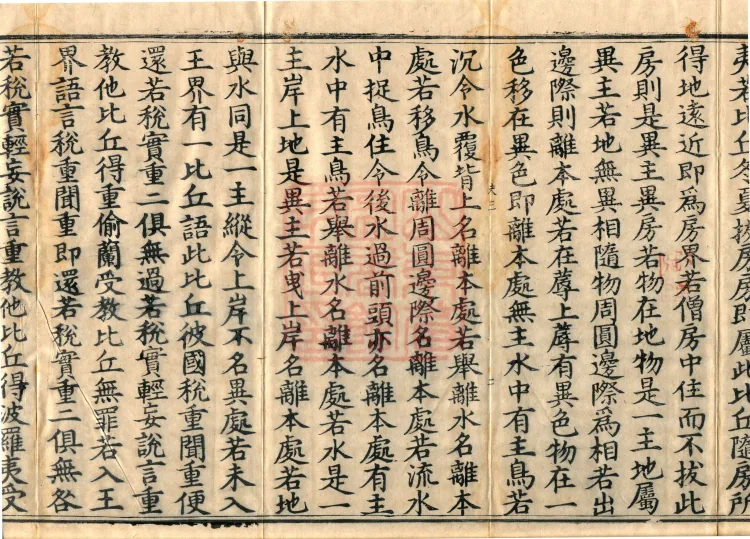 夷若比丘冬夏拔房房即屬此比丘隨房所
得地遠近即爲房界若僧房中住而不拔此
房則是異主異房若物在地物是一主地屬
異主若地無異相隨物周圓邊際爲相若出
邊際則離本處若在蓐上蓐有異色物在一
色移在異色即離本處無主水中有主鳥若
沉令水覆背上名離本處若舉離水名離本
處若移鳥令離周圓邊際名離本處若流水
中捉鳥住令後水過前頭亦名離本處有主
水中有主鳥若舉離水名離本處若水是一
主岸上地是異主若曳上岸名離本處若地
與水同是一主縱令上岸不名異處若未入
王界有一比丘語此比丘彼國稅重聞重便
還若稅實重二俱無過若稅實輕妄說言重
教他比丘得重偷蘭受教比丘無罪若入王
界語言稅重聞重即還若稅實重二俱無咎
若稅實輕妄說言重教他比丘得波羅夷受